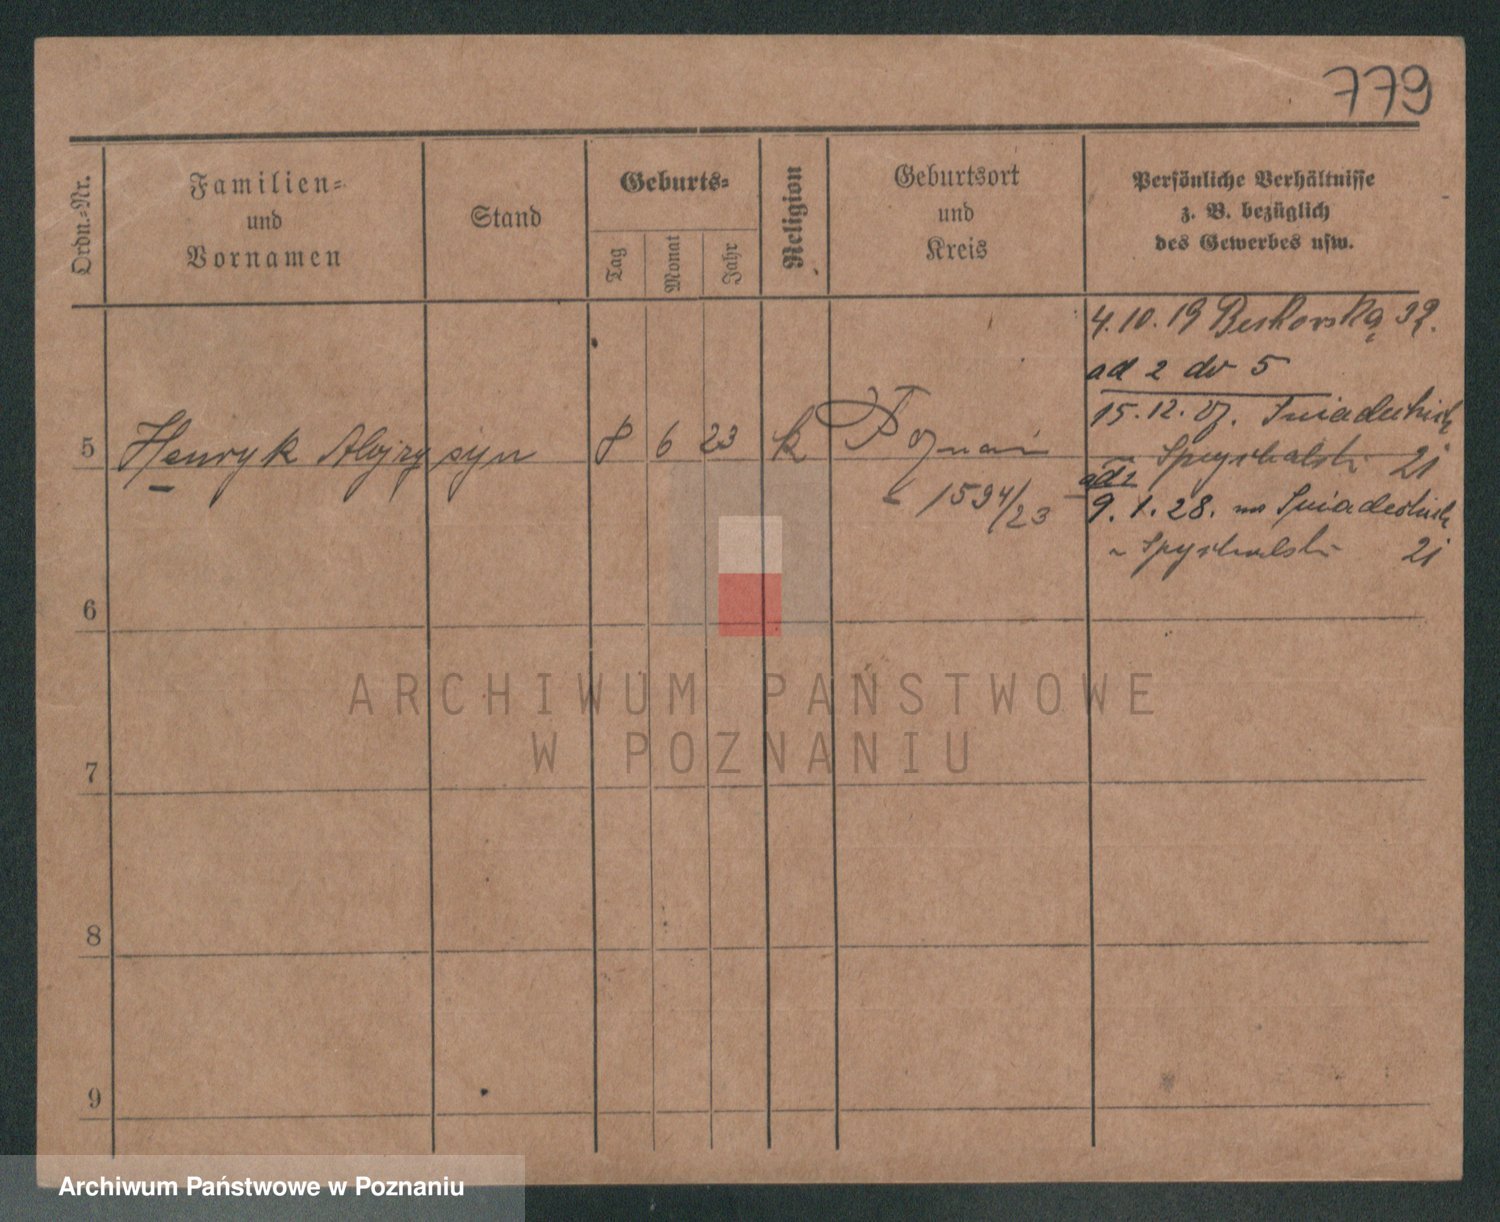 779
Ordn.-Nr.
Familien-
und
Vornamen
Stand
Geburts-
Tag
Monat
Jahr
Religion
Geburtsort
und
Kreis
Persönliche Verhältnisse
z. B. bezüglich
des Gewerbes usw.
4. 10. 19 39.
ad 2 do 5
15. 12. 27. Śniadeckich
5 Henryk Alojzy syn 8 6 23 k Poznań
Spychalski 21
ad 2
1594/23
9. 1. 28. Śniadeckich
Spychalski 21
6
7
8
9
ARCHIWUM PAŃSTWOWE
W POZNANIU
Archiwum Państwowe w Poznaniu